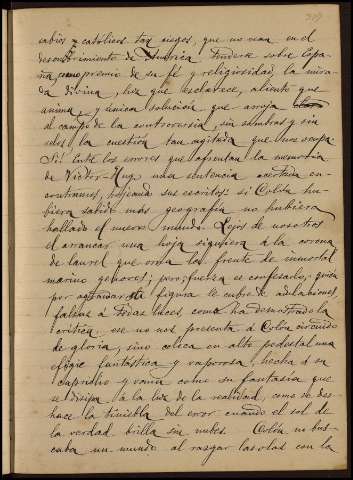 sabios y católicos tan ciegos, que no vean en el
descubrimiento de América tenderse sobre Espa-
ña, como premio de su fé y religiosidad, la mira-
da divina, luz que esclarece, aliento que
anima y única solución que arroja
al campo de la controversia, sin sombras y sin
velos la cuestión tan agitada que nos ocupa.
Si! Entre los errores que afrentan la memoria
de Victor-Hugo una sentencia acertada en-
contramos, hojeando sus escritos: si Colón hu-
biera sabido más geografía no hubiera
hallado el nuevo mundo. Lejos de nosotros
el arrancar una hoja siquiera á la corona
de laurel que orna la frente de inmortal
marino genovés; pero, fuerza es confesarlo, quien
por agrandar esta figura le cubre de adulaciones,
falsas á todas luces, como ha demostrado la
crítica, ese no nos presenta á Colón circuido
de gloria, sino coloca en alto pedestal una
efigie fantástica y vaporosa, hecha á su
capricho y vana como su fantasía que
se disipa á la luz de la realidad, como se des-
hace la tiniebla del error cuando el sol de
la verdad brilla sin nubes. Colón no bus-
caba un mundo al rasgar las olas con la